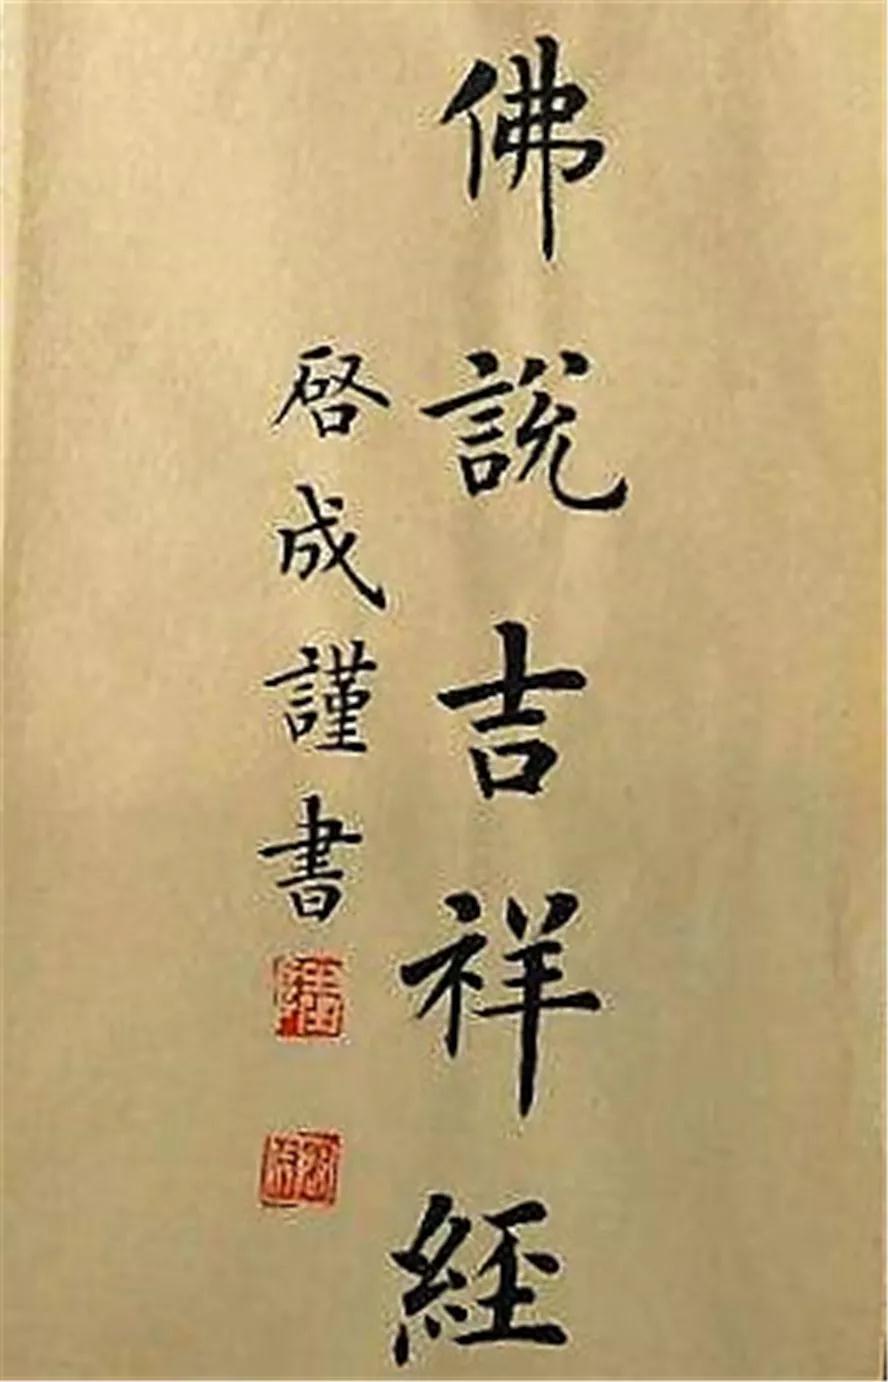 佛說吉祥經
啓成謹書